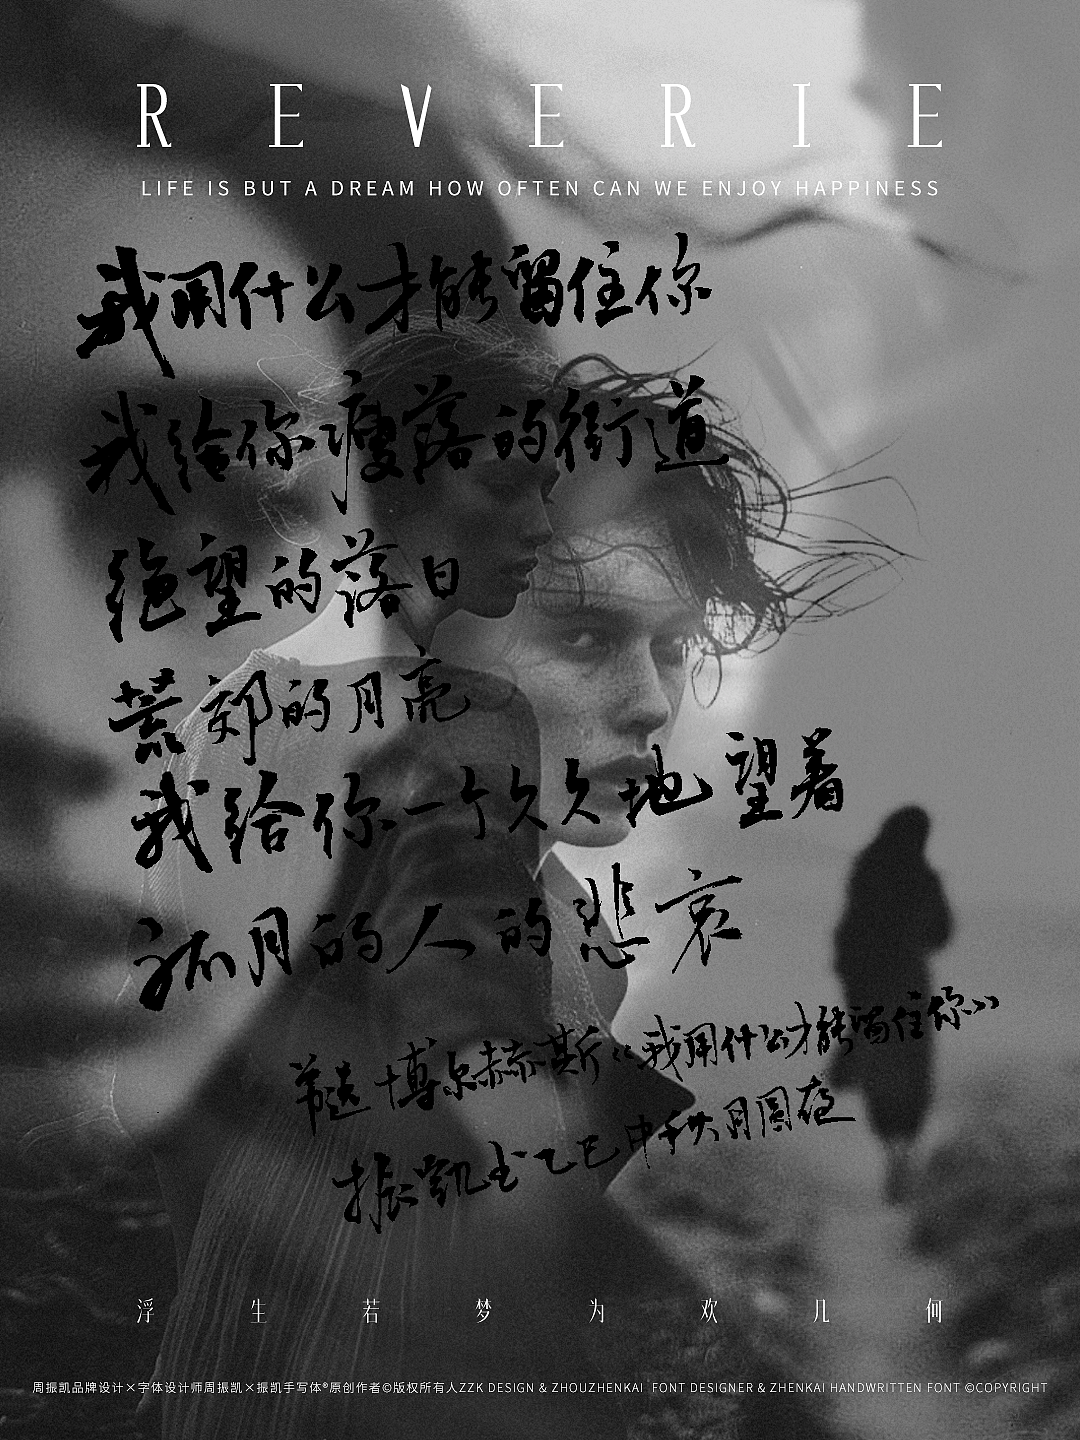 REVERIE
LIFE IS BUT A DREAM HOW OFTEN CAN WE ENJOY HAPPINESS
我用什么才能留住你
我给你瘦落的街道
绝望的落日
荒郊的月亮
我给你一个久久地望着
孤月的人的悲哀
节选博尔赫斯《我用什么才能留住你》
振凯书乙巳中秋月圆夜
浮生若梦为欢几何
周振凯品牌设计×字体设计师周振凯×振凯手写体®原创作者©版权所有人ZZK DESIGN & ZHOUZHENKAI FONT DESIGNER & ZHENKAI HANDWRITTEN FONT ©COPYRIGHT